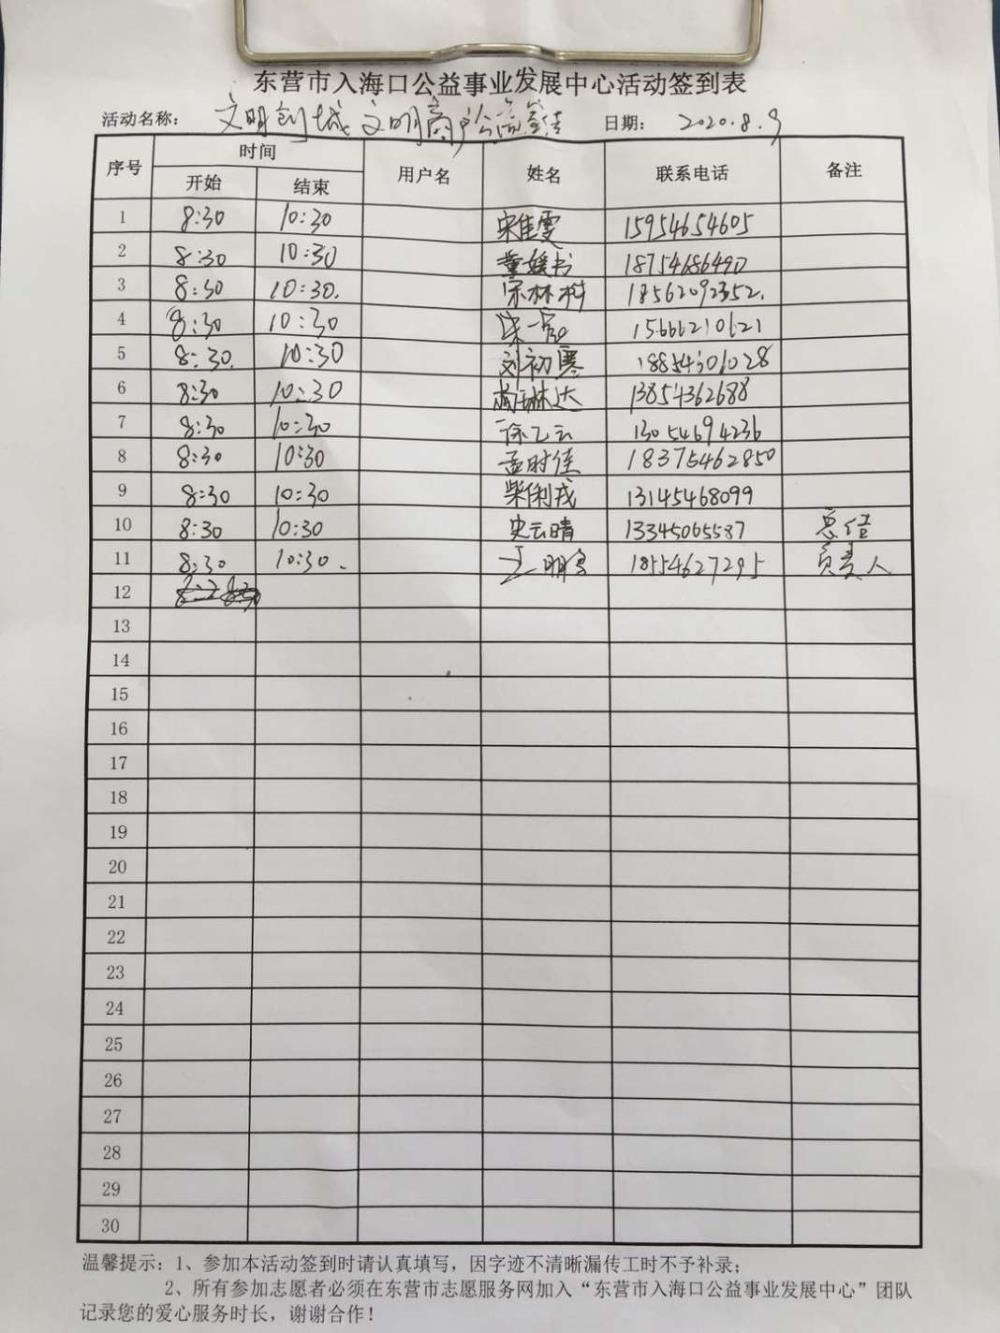 东营市入海口公益事业发展中心活动签到表
活动名称： 文明创城 文明商户 日期： 2020.8.9
序号 时间 用户名 姓名 联系电话 备注
开始 结束
1 8:30 10:30 宋佳雯 15954654605
2 8:30 10:30 董媛书 18754686490
3 8:30 10:30. 宋林树 18562092352.
4 8:30 10:30 15666210621
5 8:30. 10:30 刘初寒 18854301028
6 8:30 10:30 杨琳达 13854362688
7 8:30 10:30 徐乙云 13054694236
8 8:30 10:30 孟时佳 18375462850
9 8:30 10:30 柴俐戎 13145468099
10 8:30 10:30 史云晴 13345065587
11 8:30 10:30. 18554627295 负责人
12
13
14
15
16
17
18
19
20
21
22
23
24
25
26
27
28
29
30
温馨提示：1、参加本活动签到时请认真填写，因字迹不清晰漏传工时不予补录；
2、所有参加志愿者必须在东营市志愿服务网加入“东营市入海口公益事业发展中心”团队
记录您的爱心服务时长，谢谢合作！